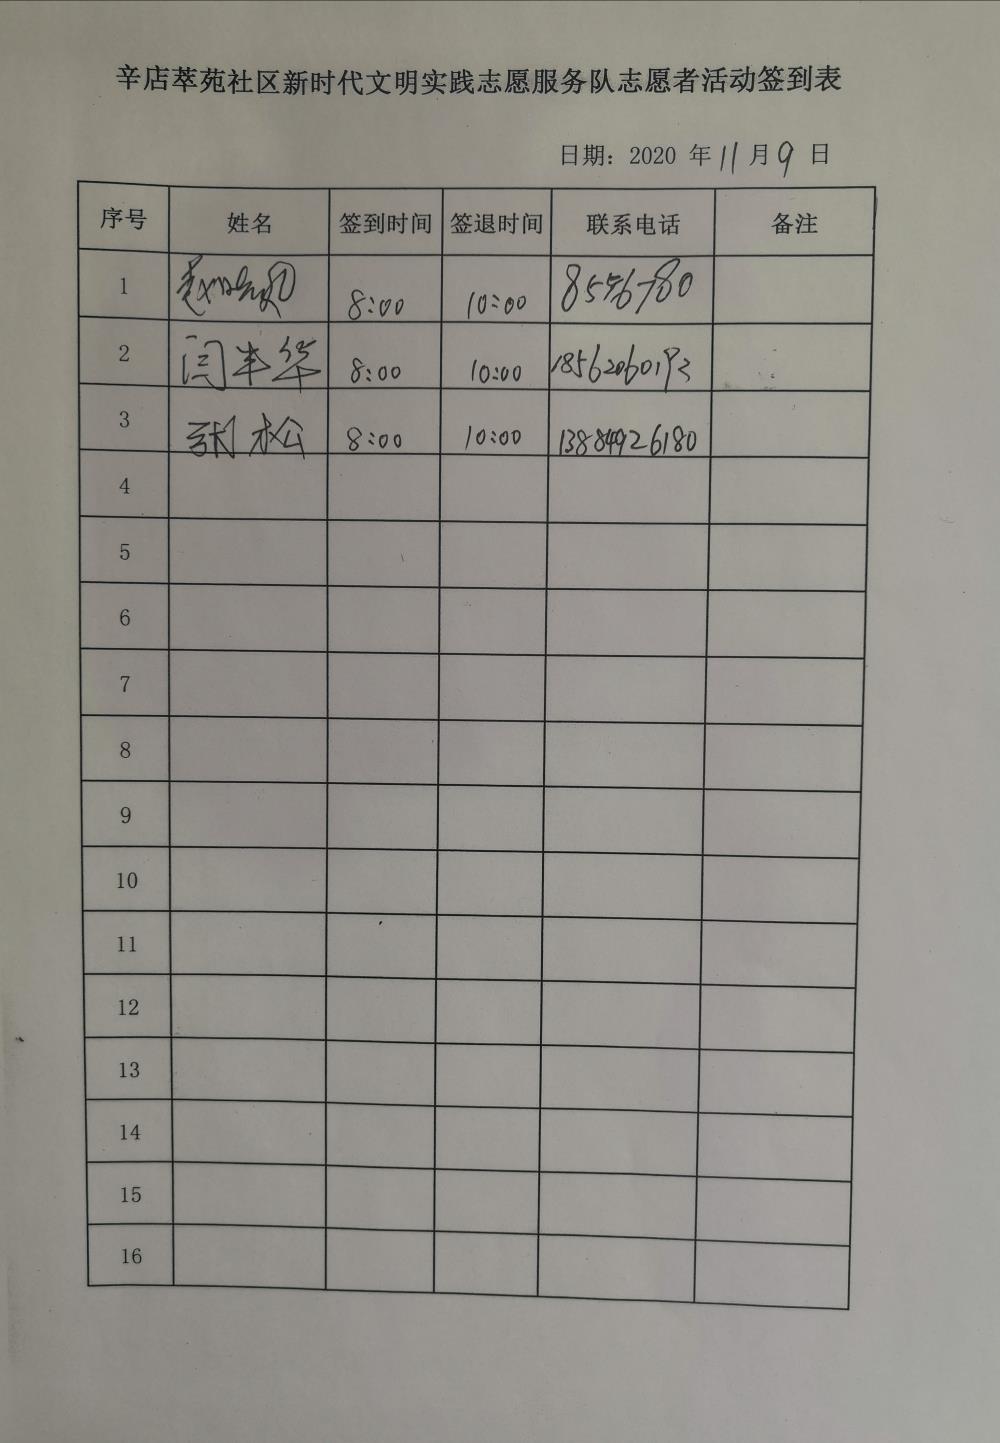 辛店萃苑社区新时代文明实践志愿服务队志愿者活动签到表
日期：2020 年 11 月 9 日
序号 姓名 签到时间 签退时间 联系电话 备注
1 8:00 10:00
2 闫丰华 8:00 10:00
3 张松 8:00 10:00 13884926180
4
5
6
7
8
9
10
11
12
13
14
15
16